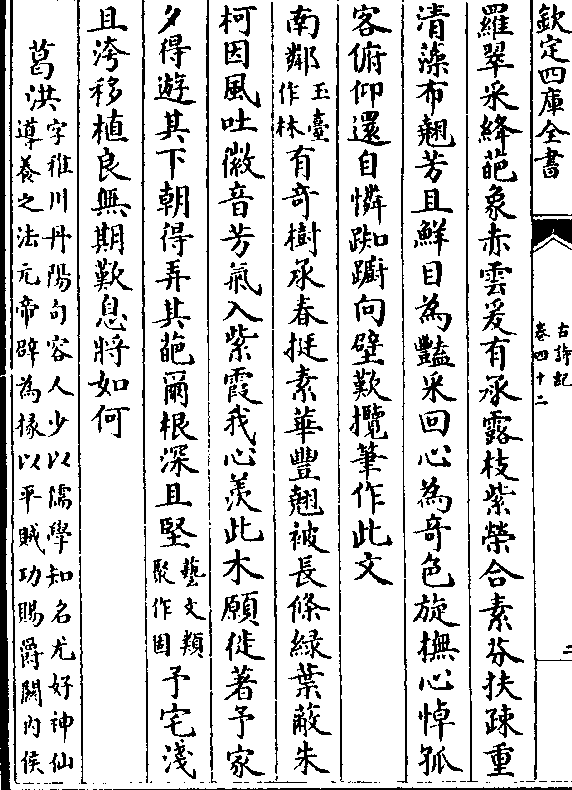 欽定四庫全書
古詩紀
卷四十二
二
羅翠采絳葩象赤雲爰有承露枝紫榮合素芬扶疎重
清藻布翹芳且鮮目為豔采回心為奇色旋撫心悼孤
客俯仰還自憐踟躕向壁歎攬筆作此文
南鄰玉臺作林有奇樹承春挺素華豐翹被長條綠葉蔽朱
柯因風吐徽音芳氣入紫霞我心羨此木願徙著予家
夕得遊其下朝得弄其葩爾根深且堅藝文類聚作固予宅淺
且洿移植良無期歎息將如何
葛洪字稚川丹陽句容人少以儒學知名尤好神仙導養之法元帝辟為掾以平賊功賜爵關內侯